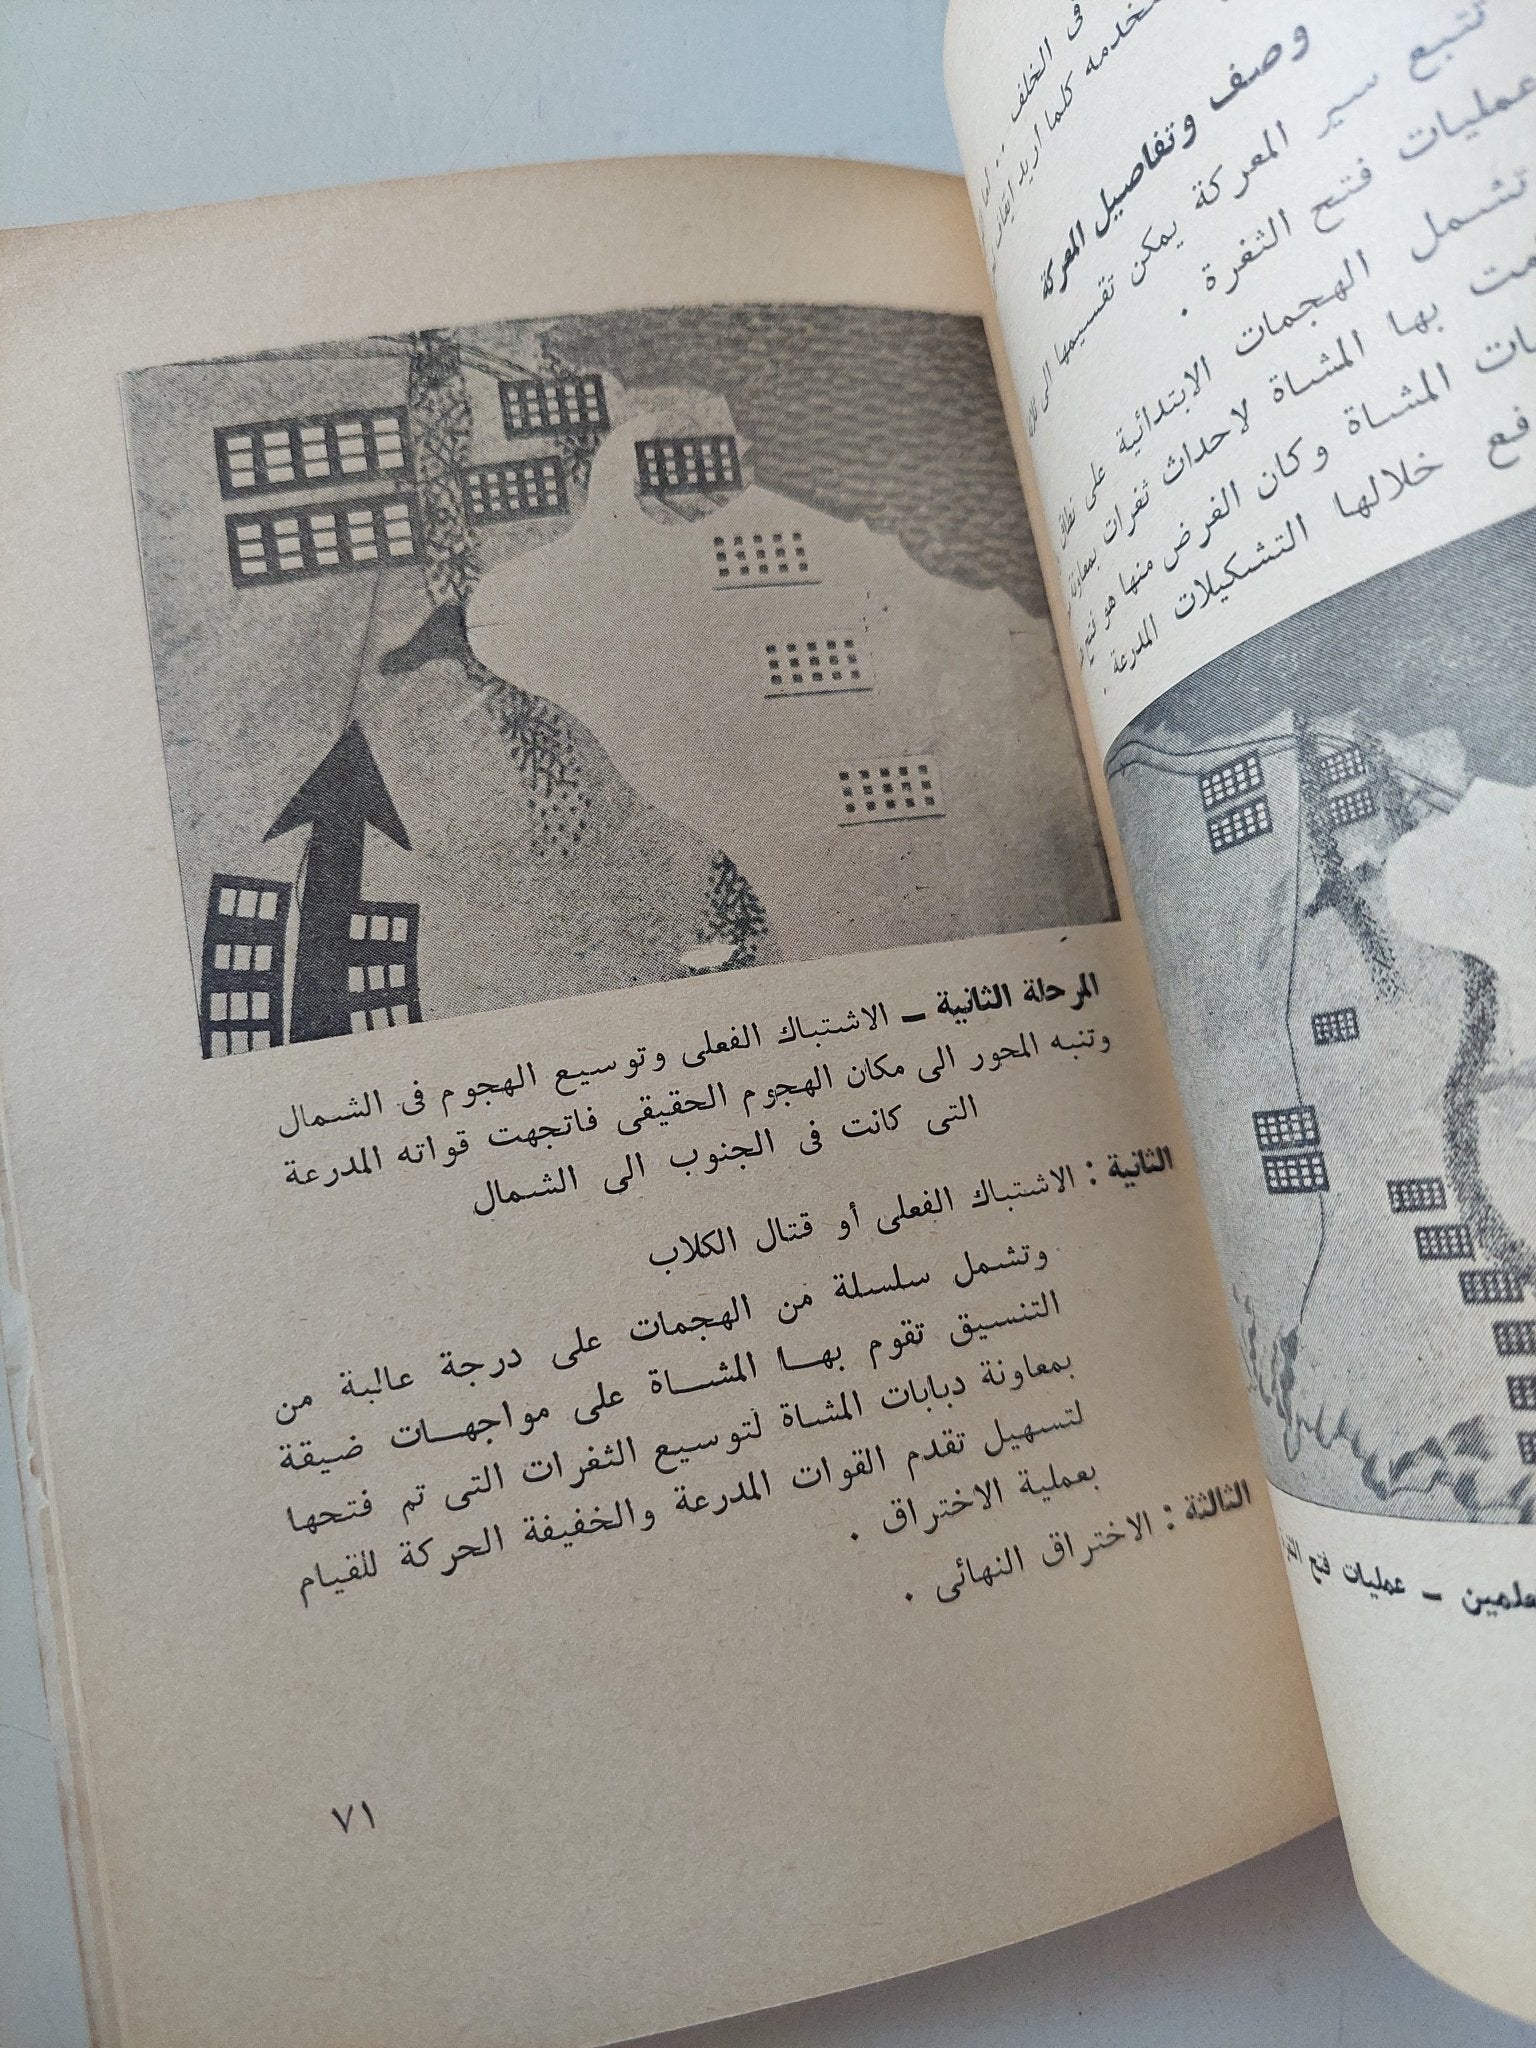 فى الخلف
وصف وتفاصيل المعركة
تتبع سير المعركة يمكن تقسيمها الى
عمليات فتح الثغرة .
تشمل الهجمات الابتدائية على نطاق
مت بها المشاة لاحداث ثغرات بمعاونة
المشاة وكان الغرض منها هو فتح
خلالها التشكيلات المدرعة .
علمين – عمليات فتح
المرحلة الثانية – الاشتباك الفعلى وتوسيع الهجوم فى الشمال
وتنبه المحور الى مكان الهجوم الحقيقى فاتجهت قواته المدرعة
التى كانت فى الجنوب الى الشمال
الثانية : الاشتباك الفعلى أو قتال الكلاب
وتشمل سلسلة من الهجمات على درجة عالية من
التنسيق تقوم بها المشاة على مواجهات ضيقة
بمعاونة دبابات المشاة لتوسيع الثغرات التى تم فتحها
لتسهيل تقدم القوات المدرعة والخفيفة الحركة للقيام
بعملية الاختراق .
الثالثة : الاختراق النهائى .
٧١